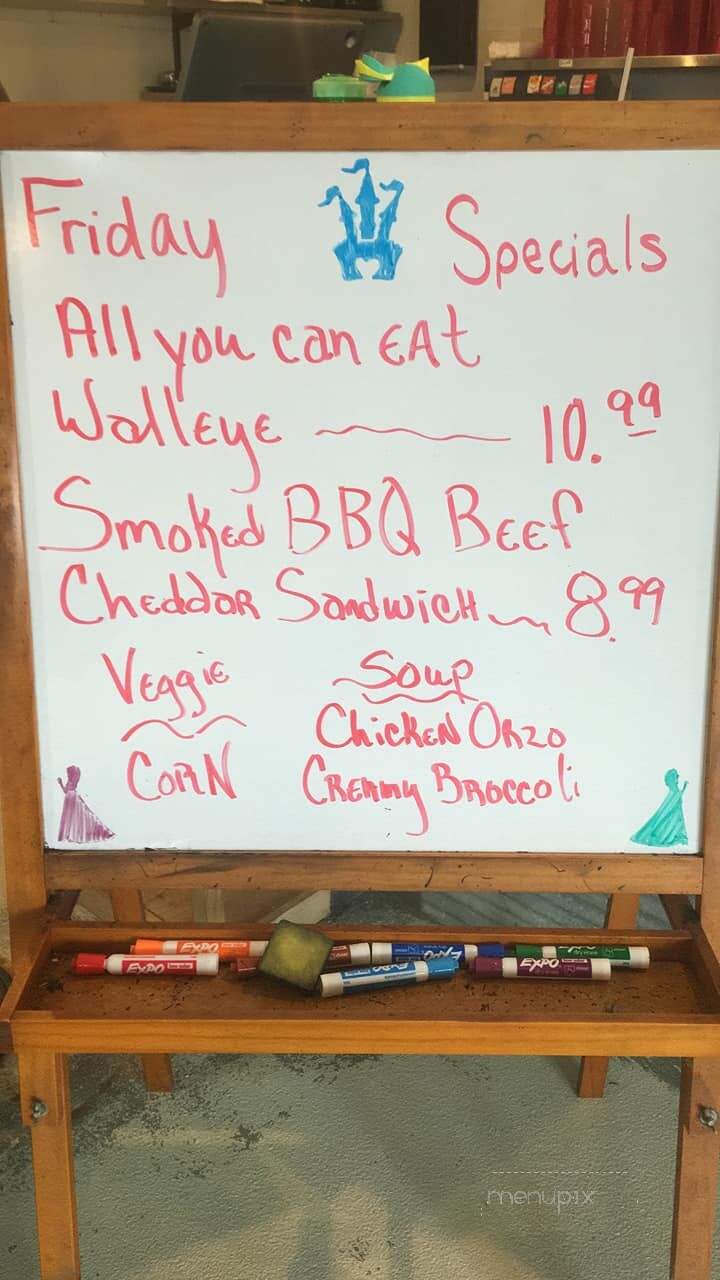 Friday Specials
All you can EAt
WallEyE 10.99
SmokEd BBQ BEEf
ChEddaR SandwicH 8.99
VEggiE Soup
CORN ChicKEN ORzo
CREAmy BRoccoli
EXPO EXPO
EXPO EXPO EXPO
menupix